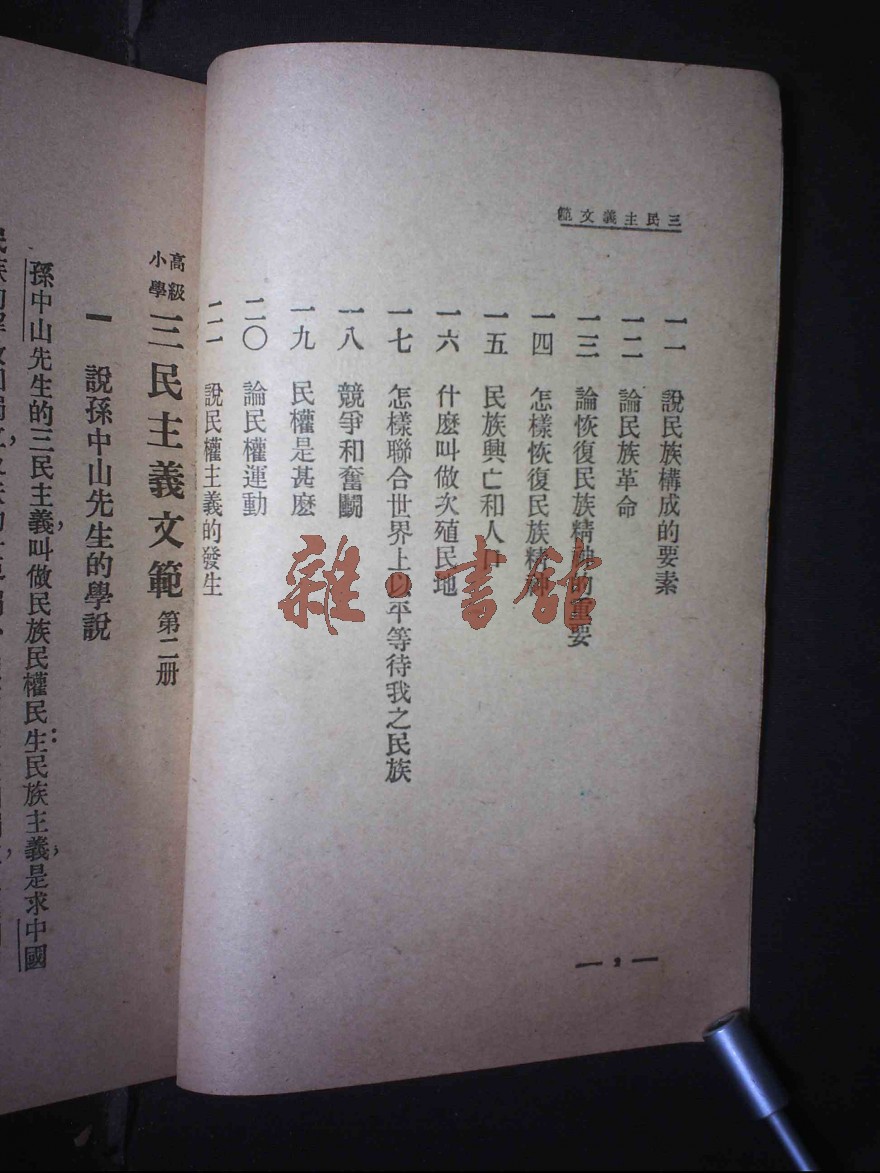 三民主義文範
一一 說民族構成的要素
一二 論民族革命
一三 論恢復民族精神的重要
一四 怎樣恢復民族精神
一五 民族興亡和人口
一六 什麼叫做次殖民地
一七 怎樣聯合世界上以平等待我之民族
一八 競爭和奮鬭
一九 民權是甚麽
二〇 論民權運動
二一 說民權主義的發生
— 2 —
高級小學 三民主義文範 第二册
一 說孫中山先生的學說
孫中山先生的三民主義,叫做民族民權民生:民族主義,是求中國
雜·書館